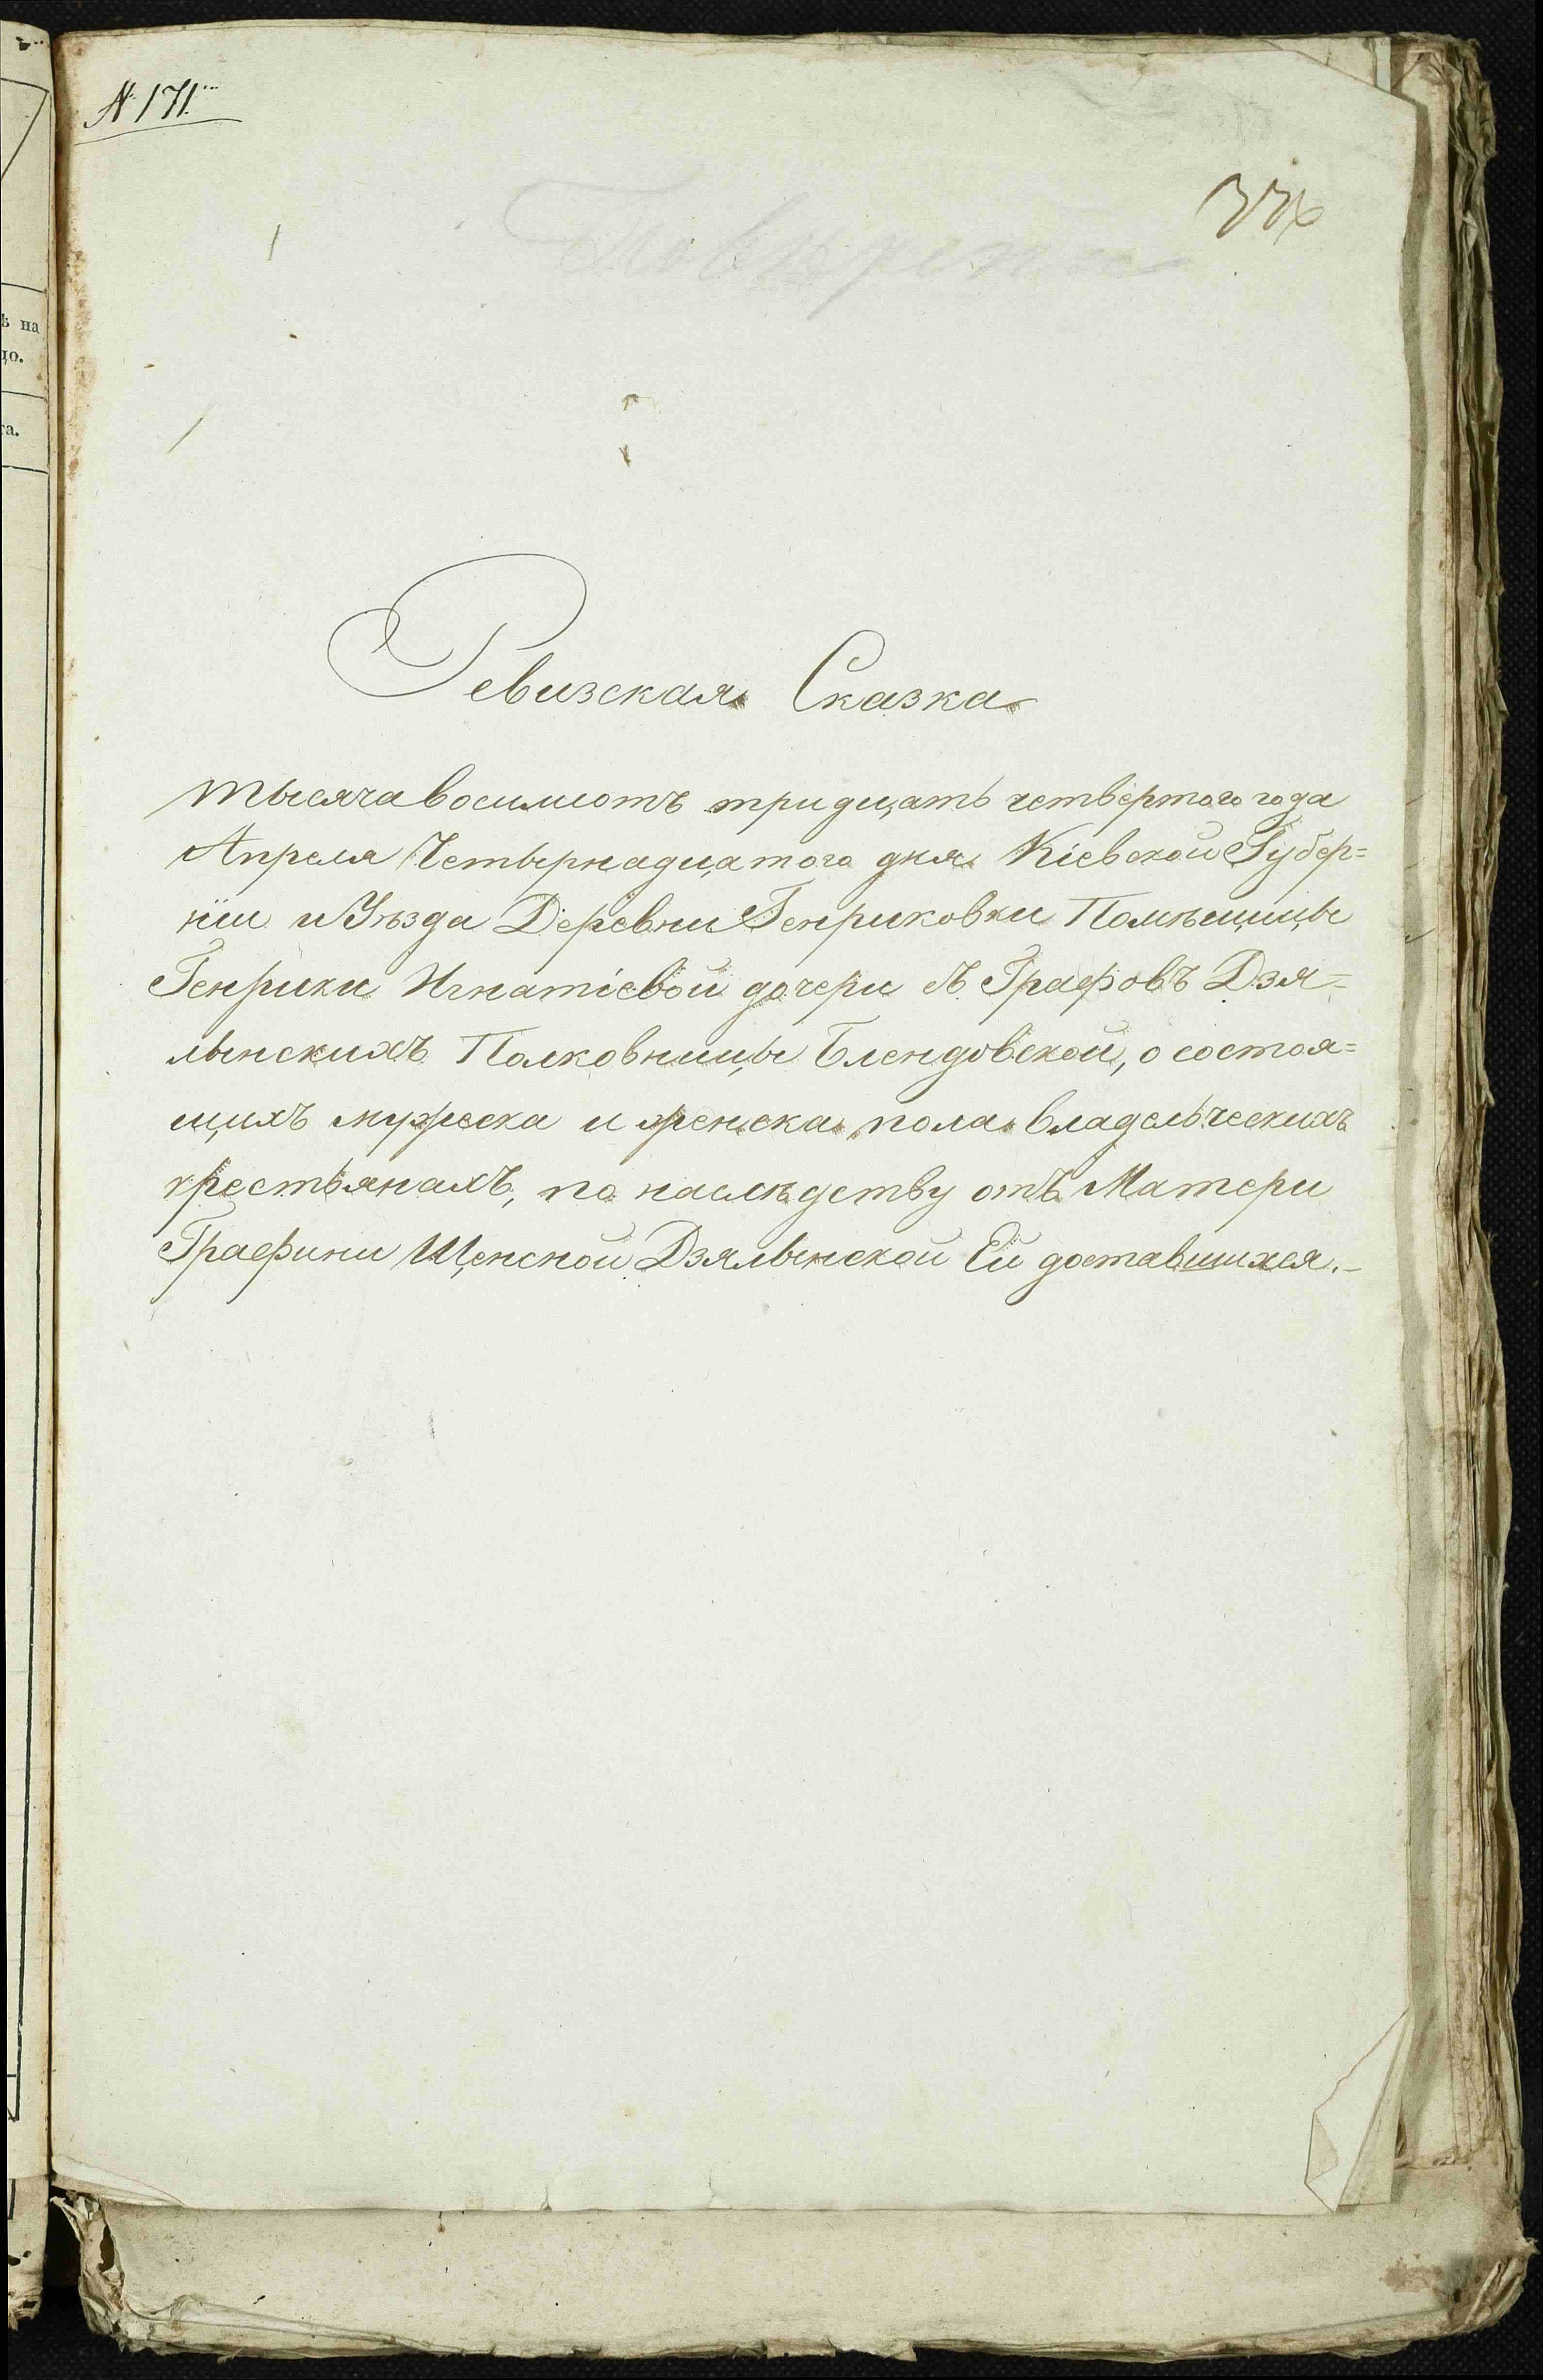 № 171.
336
Ревизская Сказка
тысяча восимсотъ тридцать четвертого года
Апреля Четырнадцатого дня Кіевской Губер=
ніи и Уѣзда Деревни Генриковки Помѣщицы
Генрики Игнатіевой дочери Зъ Графовъ Дзя=
лынскихъ Полковницы Блендовской, о состоя=
щихъ мужеска и женска пола владельческихъ
крестьянахъ, по наслѣдству отъ Матери
Графини Щенсной Дзялынской Ей доставшихся.-
ѣ на
цо.
та.